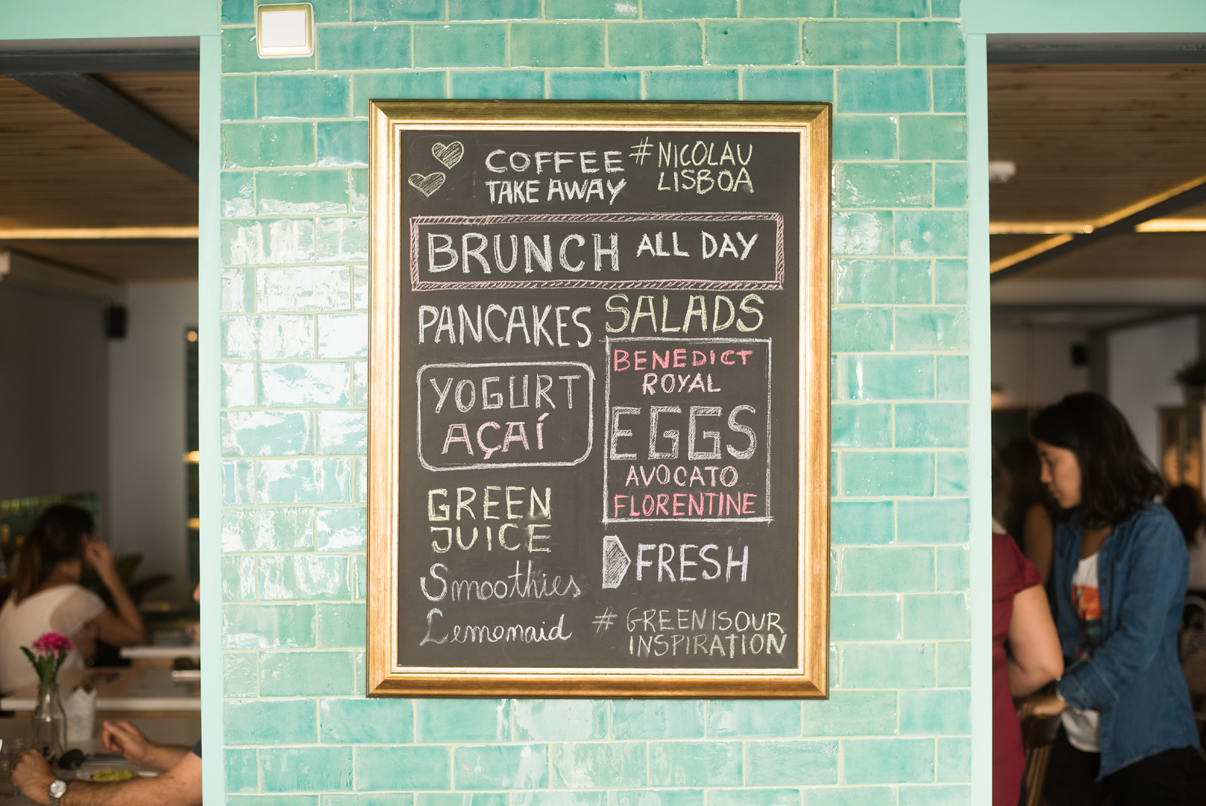 COFFEE
TAKE AWAY
#NICOLAU
LISBOA
BRUNCH ALL DAY
PANCAKES
YOGURT
AÇAÍ
GREEN
JUICE
Smoothies
Lemonaid
SALADS
BENEDICT
ROYAL
EGGS
AVOCATO
FLORENTINE
FRESH
# GREENISOUR
INSPIRATION